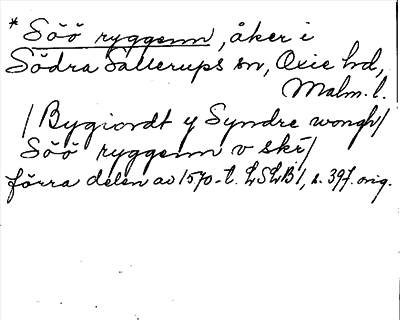 * Söö ryggenn, åker i
Södra Sallerups sn, Oxie hd,
Malm. l.
/Bygiordt y Syndre wongh/
Söö ryggenn v skr/
förra delen av 1570-t. LSLB I, s. 397. orig.